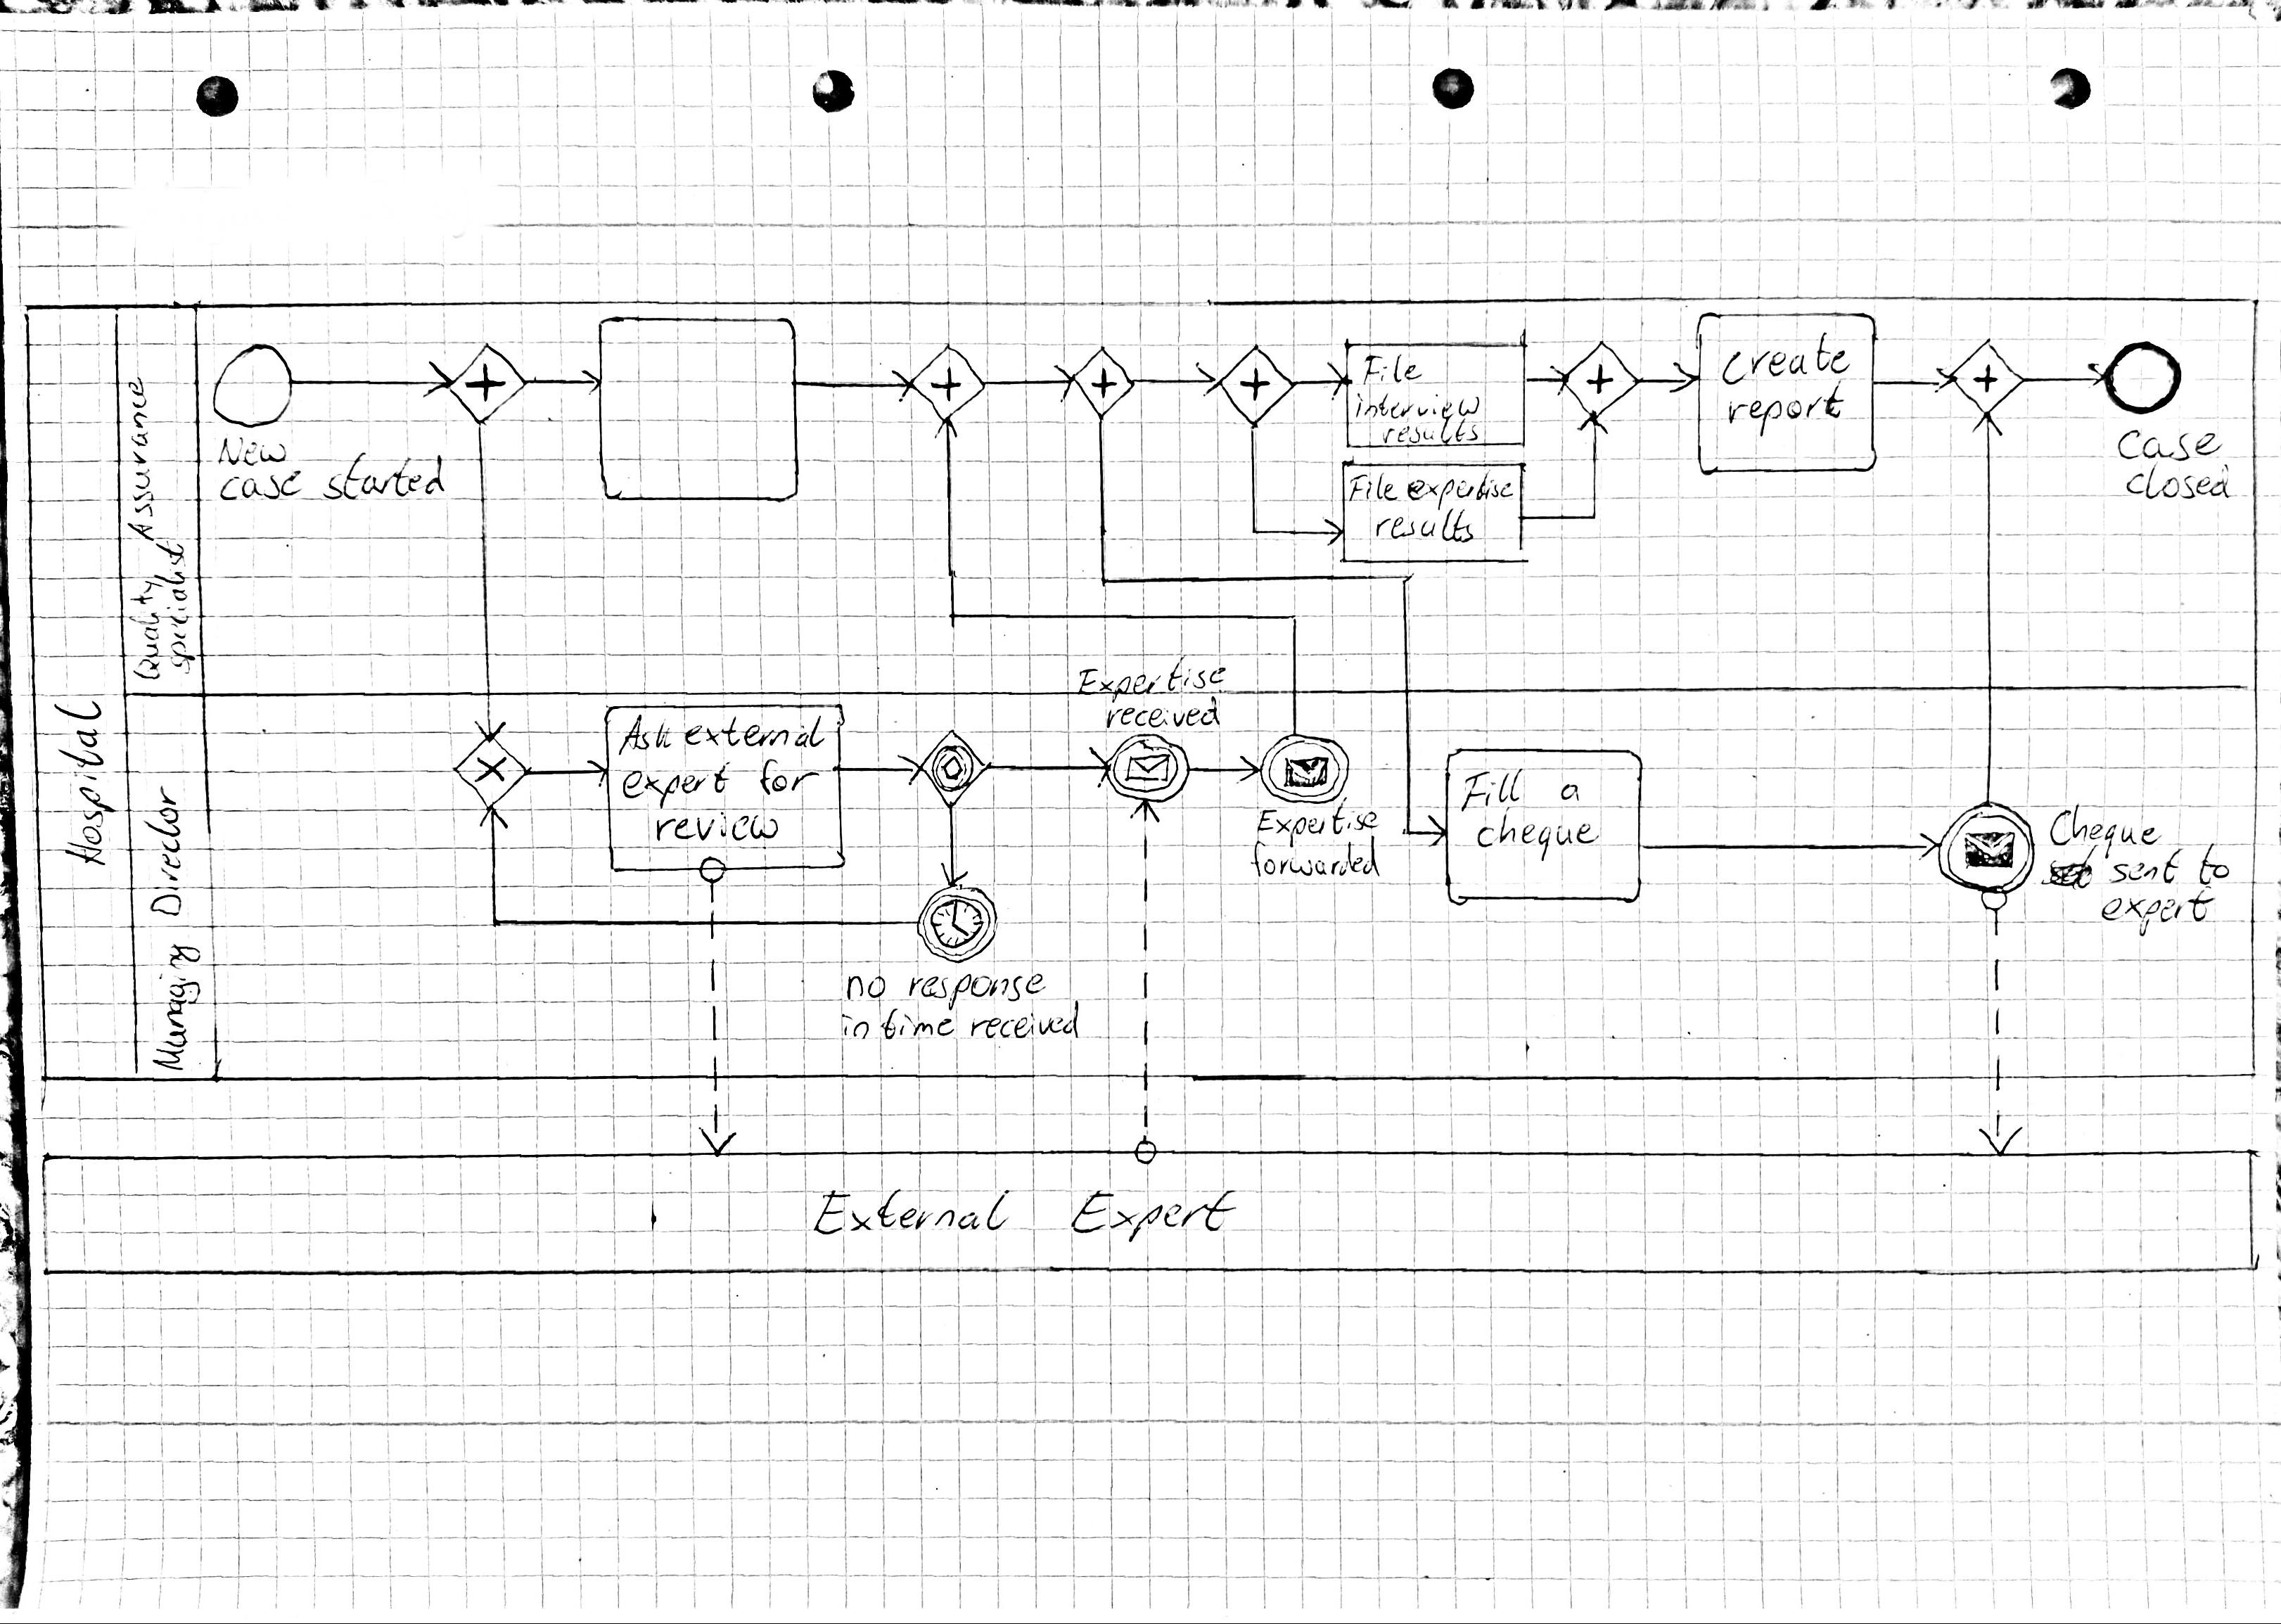 Hospital
Quality Assurance
specialist
New
case started
File
interview
results
File expertise
results
create
report
case
closed
Managing Director
Ask external
expert for
review
Expertise
received
Expertise
forwarded
no response
in time received
Fill a
cheque
Cheque
sent to
expert
External Expert